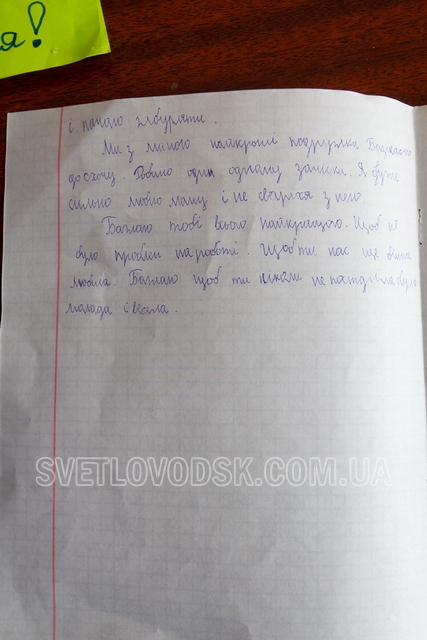 я!
і
Ми з мамою найкращі подружки.
до схочу. Робимо один одному зачіски. Я дуже
сильно люблю маму і не сварюся з нею
Бажаю тобі всього найкращого. Щоб не
було проблем на роботі. Щоб ти нас ще більше
любила. Бажаю щоб ти ніколи не була
молода і весела.
SVETLOVODSK.COM.UA